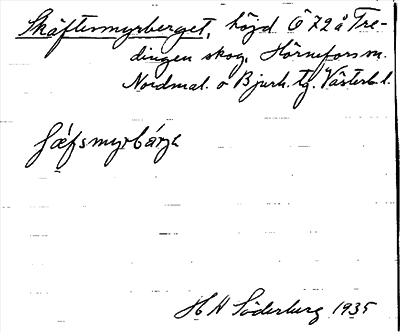 Skäftesmyrberget, höjd Ö 72 å Tre-
dingen skog. Hörnefors sn.
Nordmal. o Bjurh. tg. Västerb. l.
H N Söderberg 1935